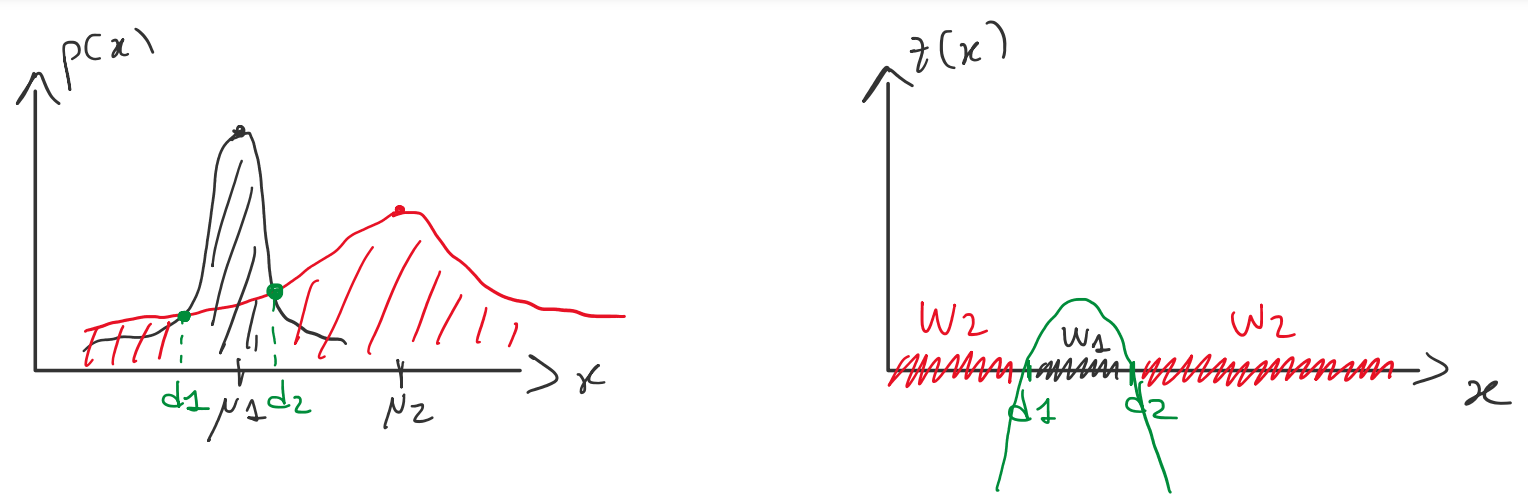 p(x)
x
d1 μ1 d2 μ2
z(x)
W2 W1 W2
d1 d2
x